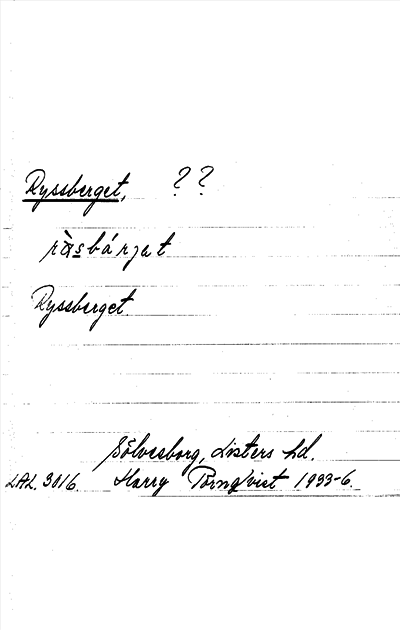 Ryssberget, ??
ràsbárjat
Ryssberget.
Sölvesborg, Listers hd.
LAL. 3016. Harry Törnqvist 1933-6.